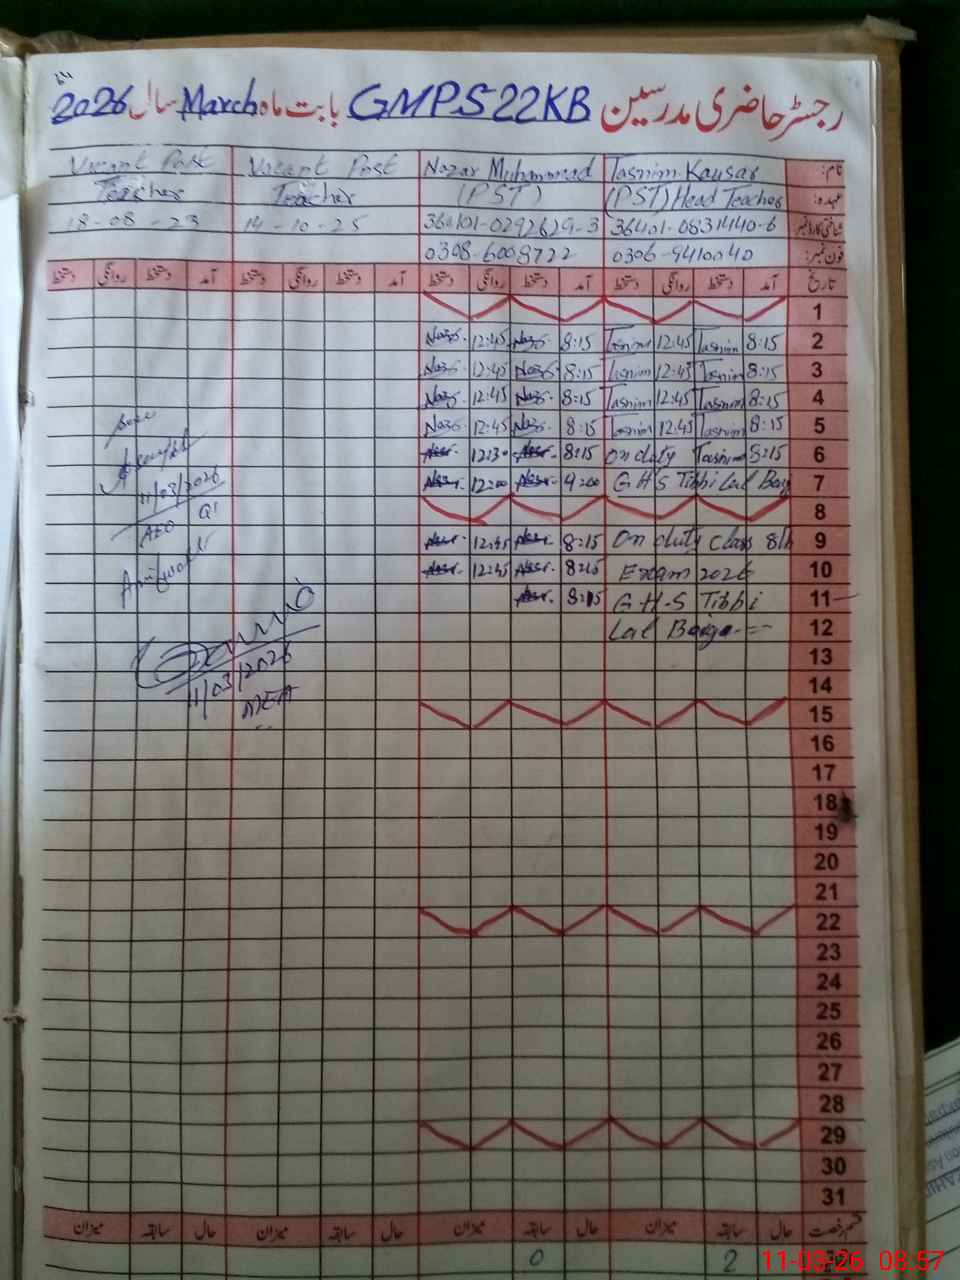 رجسٹر حاضری مدرسین GMPS 22KB بابت ماہ March سال 2026
نام: Tasnim Kausar Nazar Muhammad Vacant Post Vacant Post
عہدہ: (PST) Head Teacher (PST) Teacher Teacher
شناختی کارڈ نمبر 36401-0831440-6 14-10-25 18-08-23
فون نمبر: 0306-9410040 0308-6008722
تاریخ آمد دستخط روانگی دستخط آمد دستخط روانگی دستخط آمد دستخط روانگی دستخط آمد دستخط روانگی دستخط
1
2 8:15 Tasnim 12:45 Tasnim 8:15 12:45
3 8:15 Tasnim 12:45 Tasnim 8:15 12:45
4 8:15 Tasnim 12:45 Tasnim 8:15 12:45
5 8:15 Tasnim 12:45 Tasnim 8:15 12:45
6 8:15 Tasnim On duty 8:15 12:30
7 GHS Tibbi Lal Baig 9:00 12:00
8
9 On duty class 8th 8:15 12:45
10 Exam 2026 8:15 12:45
11 G.H.S Tibbi 8:15
12 Lal Baig
13
14
15
16
17
18
19
20
21
22
23
24
25
26
27
28
29
30
31
11/03/2026
AEO
11/03/2026
MEA
حال سابقہ میزان حال سابقہ میزان حال سابقہ میزان حال سابقہ میزان
2 0
11-03-26 08:57